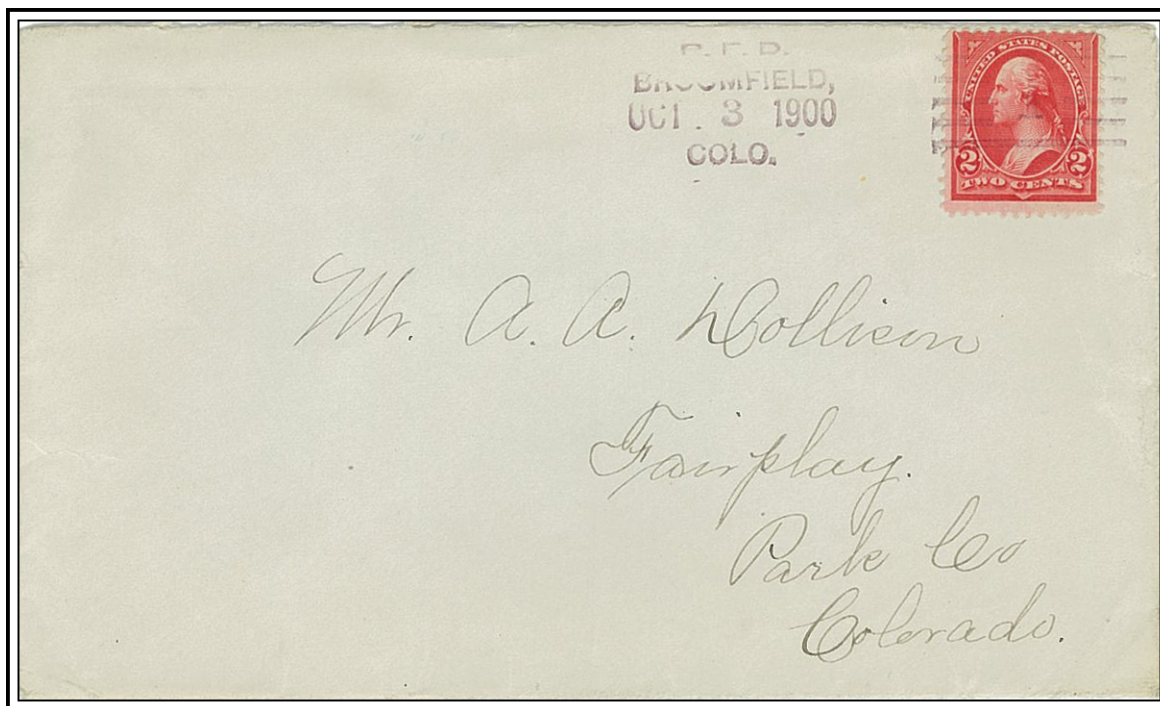 R. F. D.
BROOMFIELD,
OCT. 3 1900
COLO.
UNITED STATES POSTAGE
2 2
TWO CENTS
Mr. A. A. Dollison
Fairplay.
Park Co
Colorado.